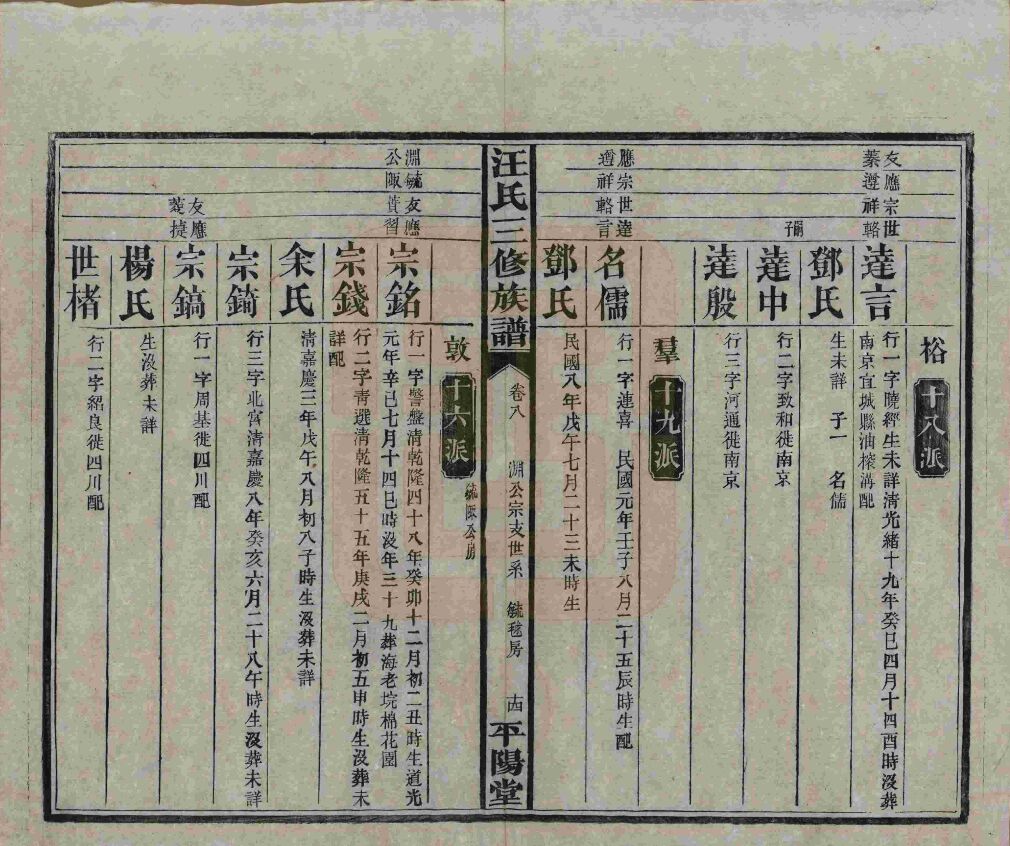 裕 十八派
友應宗世
蓁遵祥輅
達言 行一字曉經生未詳清光緒十九年癸巳四月十四酉時沒葬
南京宜城縣油榨溝配
鄧氏 生未詳 子一 名儒
嗣子
達申 行二字致和徙南京
達殷 行三字河通徙南京
羣 十九派
應宗世達
遵祥輅言
名儒 行一字連喜 民國元年壬子八月二十五辰時生配
鄧氏 民國八年戊午七月二十三未時生
汪氏三修族譜 卷八 淵公宗支世系 毓毯房 十四 平陽堂
敦 十六派 毓陬公房
淵毓
公陬
友應
蕢習
宗銘 行一字警盤清乾隆四十八年癸卯十二月初二丑時生道光
元年辛巳七月十四巳時沒年三十九葬海老垸棉花園
宗錢 行二字青選清乾隆五十五年庚戌二月初五申時生沒葬未
詳配
余氏 清嘉慶三年戊午八月初八子時生沒葬未詳
宗錡 行三字北宮清嘉慶八年癸亥六月二十八午時生沒葬未詳
友應
蓌捷
宗鎬 行一字周基徙四川配
楊氏 生沒葬未詳
世楮 行二字紹良徙四川配